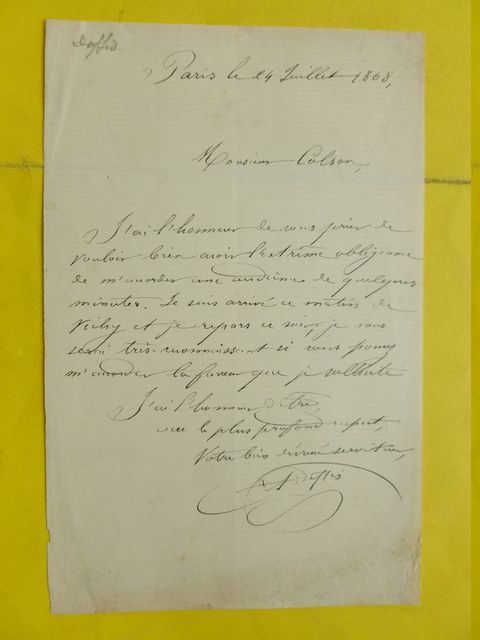 Deffis
Paris le 24 Juillet 1868,
Monsieur Colson,
J'ai l'honneur de vous prier de
vouloir bien avoir l'extrême obligeance
de m'accorder une audience de quelques
minutes. Je suis arrivé ce matin de
Vichy et je repars ce soir, je vous
serai très-reconnaissant si vous pouvez
m'accorder la faveur que je sollicite
J'ai l'honneur d'être,
avec le plus profond respect,
Votre bien dévoué serviteur,
Deffis